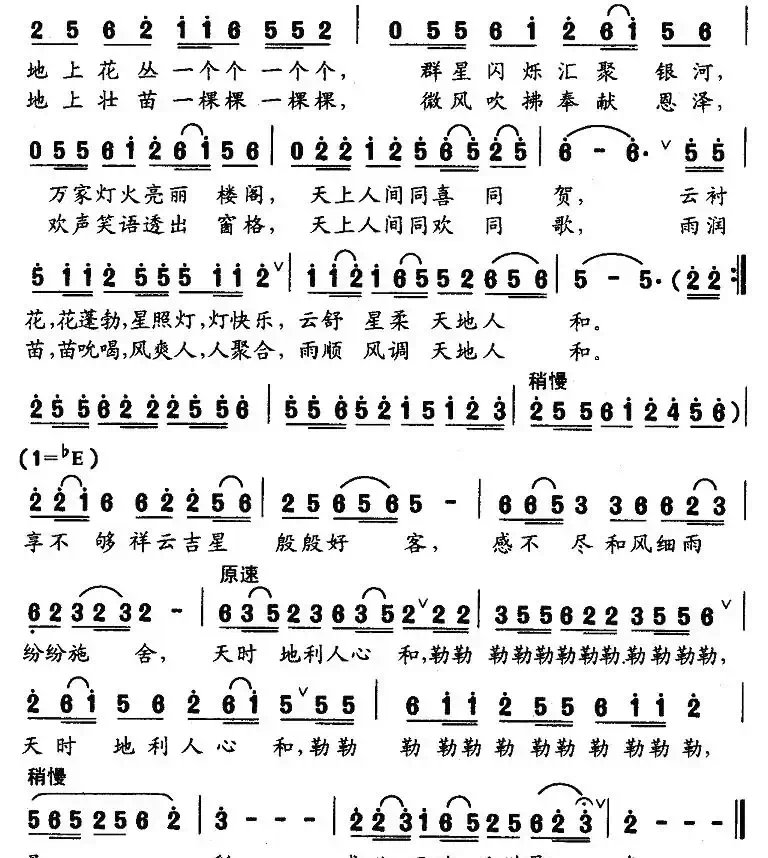 2 5 6 2 1 1 6 5 5 2 | 0 5 5 6 1 2 6 1 5 6 |
地上花丛一个个一个个， 群星闪烁汇聚银河，
地上壮苗一棵棵一棵棵， 微风吹拂奉献恩泽，
0 5 5 6 1 2 6 1 5 6 | 0 2 2 1 2 5 6 5 2 5 | 6 - 6· ∨ 5 5
万家灯火亮丽楼阁， 天上人间同喜同贺， 云衬
欢声笑语透出窗格， 天上人间同欢同歌， 雨润
5 1 1 2 5 5 5 1 1 2 ∨ | 1 1 2 1 6 5 5 2 6 5 6 | 5 - 5· (2 2 :‖
花，花蓬勃，星照灯，灯快乐，云舒星柔天地人和。
苗，苗吮喝，风爽人，人聚合，雨顺风调天地人和。
稍慢
2 5 5 6 2 2 2 5 5 6 | 5 5 6 5 2 1 5 1 2 3 | 2 5 5 6 1 2 4 5 6 ) |
(1=♭E)
2 2 1 6 6 2 2 5 6 | 2 5 6 5 6 5 - | 6 6 5 3 3 6 6 2 3 |
享不够祥云吉星 殷殷好客， 感不尽和风细雨
原速
6 2 3 2 3 2 - | 6 3 5 2 3 6 3 5 2 ∨ 2 2 | 3 5 5 6 2 2 3 5 5 6 ∨ |
纷纷施舍， 天时地利人心和，勒勒 勒勒勒勒勒勒勒勒勒勒，
2 6 1 5 6 2 6 1 5 ∨ 5 5 | 6 1 1 2 5 5 6 1 1 2 |
天时地利人心和，勒勒 勒勒勒勒勒勒勒勒勒勒，
稍慢
5 6 5 2 5 6 2 | 3 - - - | 2 2 3 1 6 5 2 5 6 2 3 ∨ | 2 - - - ‖